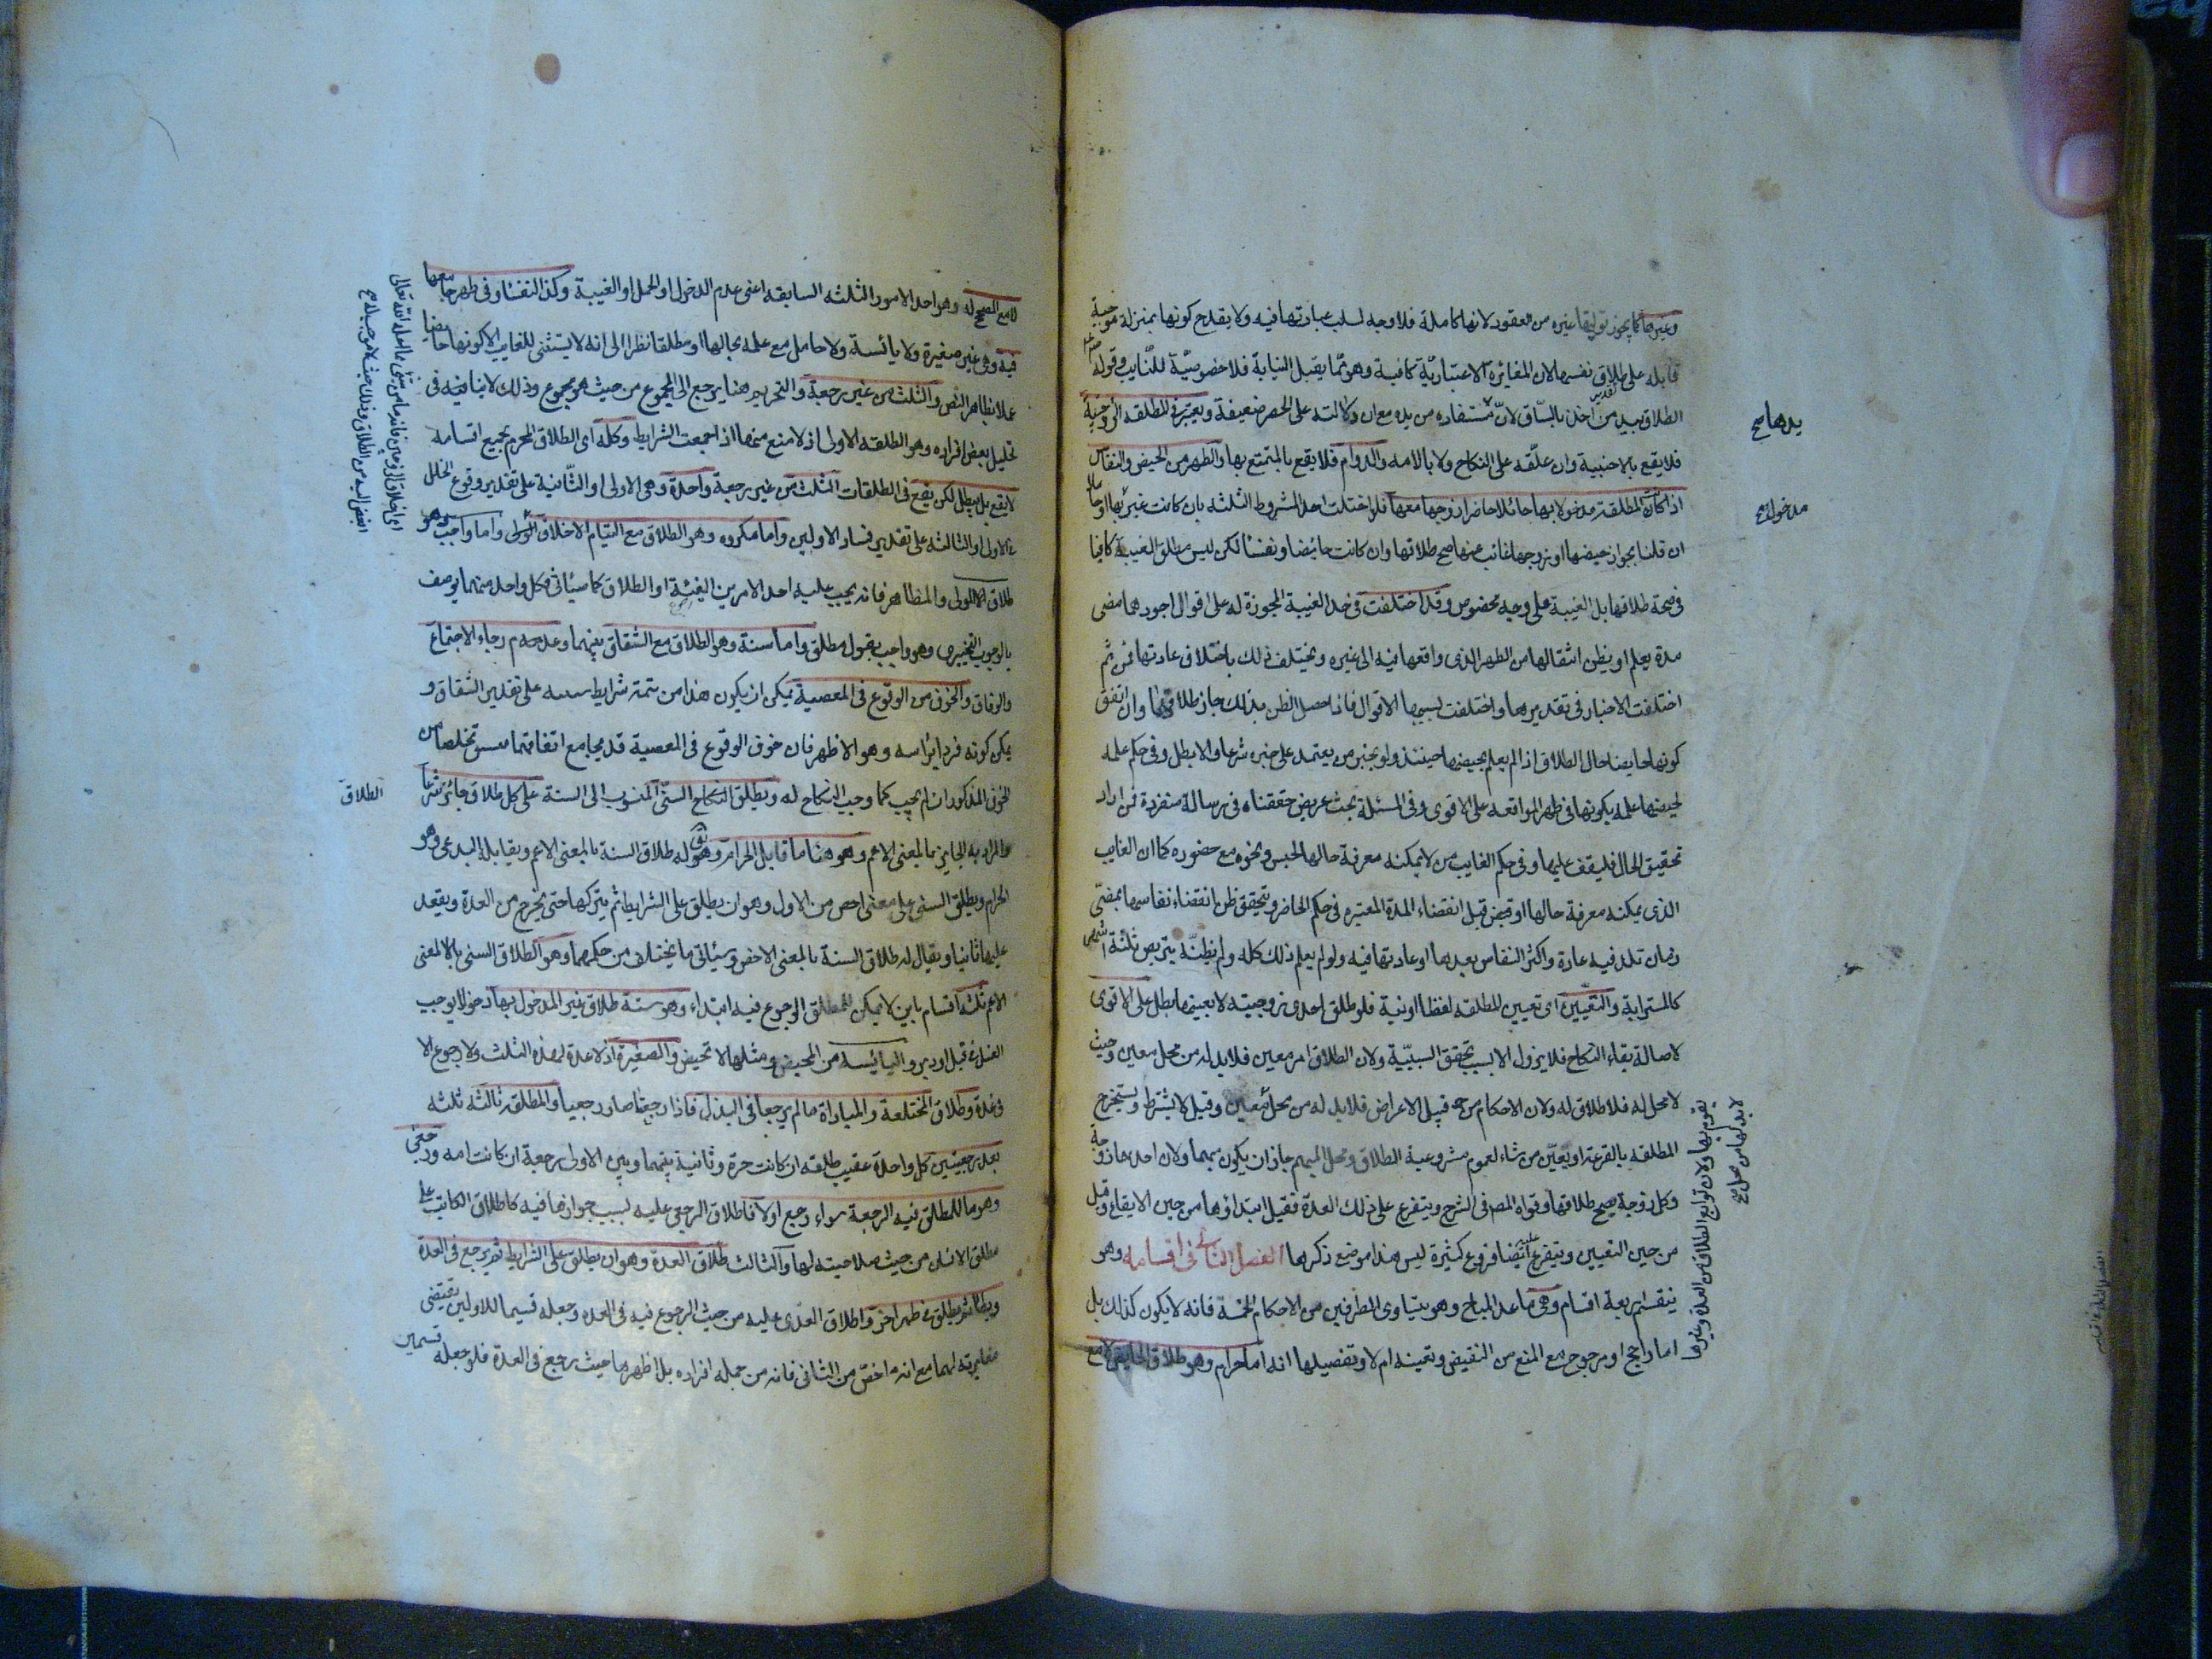 وغيرها كما يجوز توليتها غيره من العقود لانها كاملة فلا وجه لسلب عبارتها فيه ولا يقدح كونها بمنزلة موجبة
قابلة على طلاق نفسها لان المغائرة الاعتباريّة كافية وهو ممّا يقبل النيابة فلا خصوصيّة للنّايب وقوله صلى
الطلاق بيد من اخذ بالسّاق لان مستفاده من يده مع ان دلالته على الحصر ضعيفة ويعتبر في المطلقه الزوجية
يدها صح
فلا يقع بالاجنبية وان علّقه على النكاح ولا بالامه والدوام فلا يقع بالمتمتع بها والطهر من الحيض والنفاس
اذا كانت المطلقة مدخولا بها حائلا حاضرا زوجها معها فلو اختلت احد الشروط الثلثه بان كانت غير مدخول بها او حاملا
مدخول صح
ان قلنا بجواز حيضها او زوجها غائب عنها صح طلاقها وان كانت حائضا او نفسا لكن ليس مطلق الغيبة كافيا
في صحة طلاقها بل الغيبة على وجه مخصوص وقد اختلفت في حد الغيبة المجوزة له على اقوال اجودها مضى
مدة يعلم او يظن انتقالها من الطهر الذى واقعها فيه الى غيره ويختلف ذلك باختلاف عادتها فمن ثم
اختلفت الاخبار في تقديرها واختلفت بسببها الاقوال فاذا حصل الظن بذلك جاز طلاقها وان اتفق
كونها حايضا حال الطلاق اذا لم يعلم بحيضها حينئذ ولو بخبر من يعتمد على خبره شرعا والا بطل وفي حكم علمه
لحيضها علمه بكونها في طهر المواقعه على الاقوى وفي المسئلة بحث عريض حققناه في رسالة منفردة من اراد
تحقيق الحال فليقف عليها وفي حكم الغايب من لا يمكنه معرفة حالها لحبس ونحوه مع حضوره كما ان الغايب
الذى يمكنه معرفة حالها او قبض قبل انقضاء المدة المعتبره في حكم الحاضر ويتحقق ظن انقضاء نفاسها بمضىّ
زمان تلد فيه عادة واكثر النفاس بعدها او عادتها فيه ولو لم يعلم ذلك كله ولم يظنّه يتربص ثلثة اشهر
كالمسترابة والتعيين اى تعيين المطلقه لفظا او نية فلو طلق احدى زوجيته لا بعينها بطل على الاقوى
لاصالة بقاء النكاح فلا يزول الا بسبب تحقق السببيّة ولان الطلاق امر معين فلا بد له من محل معين وحيث
لا محل له فلا طلاق له ولان الاحكام من قبيل الاعراض فلا بد له من محل معين وقيل لا يشترط ويستخرج
المطلقه بالقرعة او يعيّن من شاء لعموم مشروعية الطلاق ومحل المبهم جاز ان يكون مبهما ولان احدهما زوجة
وكل زوجة يصح طلاقها وقواه المصـ في الشرح ويتفرع على ذلك العدة فقيل ابتداؤها من حين الايقاع وقيل
من حين التعيين ويتفرع عليه ايضا فروع كثيرة ليس هذا موضع ذكرها الفصل الثاني في اقسامه وهو
ينقسم اربعة اقسام وهي ما عد المباح وهو يتساوى الطرفين من الاحكام الخمسة فانه لا يكون كذلك بل
اما راجح او مرجوح مع المنع من النقيض وتعينه ام لا وتفصيلها انه اما حرام وهو طلاق الحايض لا مع
يقوم بها ولان توابع الطلاق من العدة وغيرها
لا بد لها من محل صح
لا مع المصحح له وهو احد الامور الثلثه السابقه اعنى عدم الدخول او الحمل او الغيبة وكذا النفسا وفي طهر جامعها
فيه وهي غير صغيرة ولا يائسة ولا حامل مع علمه بحالها او مطلقا نظرا الى انه لا يستثنى للغايب الا كونها حايضا
عملا بظاهر النص والثلث من غير رجعة والتحريم هنا يرجع الى المجموع من حيث هو مجموع وذلك لا ينافيه في
تحليل بعض افراده وهو الطلقه الاولى اذ لا منع منها اذا اجمعت الشرايط وكله اى الطلاق المحرم بجميع اقسامه
لا يقع بل يبطل لكن يقع في الطلقات الثلث من غير رجعية واحدة وهي الاولى او الثّانية على تقدير وقوع الخلل
في الاولى او الثالثه على تقدير فساد الاوليين واما مكروه وهو الطلاق مع التيام الاخلاق واما واجب وهو
اى اخلاق الزوجين فانه ما من شئ مما احله الله تعالى
ابغض اليه من الطلاق وذلك حيث لا موجب له صح
طلاق المولى والمظاهر فانه يجب عليه احد الامرين الفئية او الطلاق كما سيأتى فكل واحد منهما يوصف
بالوجوب التخييرى وهو واجب بقول مطلق واما سنة وهو الطلاق مع الشقاق بينهما وعدم رجاء الاجتماع
والوفاق والخوف من الوقوع في المعصية يمكن ان يكون هذا من تتمة شرايط سننه على تقدير الشقاق و
يمكن كونه فردا براسه وهو الاظهر فان خوف الوقوع في المعصية قد يجامع اتفاقهما فيسن تخلصا من
الخوف المذكور ان لم يجب كما وجب النكاح له ويطلق النكاح السنّى المنسوب الى السنة على كل طلاق جائز شرعا
الطلاق
والمراد به الجايز بالمعنى الاعم وهو هنا ما قابل الحرام وهو له طلاق السنة بالمعنى الاعم ويقابله البدعى وهو
الحرام ويطلق السنى على معنى اخص من الاول وهو ان يطلق على الشرايط ثم يتركها حتى يخرج من العدة ويعقد
عليها ثانيا ويقال له طلاق السنة بالمعنى الاخص وسيأتى ما يختلف من حكمهما وهو الطلاق السنى بالمعنى
الاعم ثلثه اقسام باين لا يمكن للمطلق الرجوع فيه ابتداء وهو ستة طلاق غير المدخول بها دخولا يوجب
الغسل في قبل او دبر واليائيسه من المحيض ومثلها لا تحيض والصغيرة اذ لا عدة لهذه الثلث ولا رجوع الا
في عدة وطلاق المختلعة والمباراة ما لم يرجعا في البذل فاذا رجعتا صار رجعيا والمطلقه ثالثه ثلثه
بعد رجعيتين كل واحدة عقيب طلقه ان كانت حرة وثانية بينهما وبين الاولى رجعة ان كانت امه ورجعى
وهو ما للمطلق فيه الرجعة سواء رجع اولا فاطلاق الرجعى عليه لسبب جوازها فيه كاطلاق الكاتب على
مطلق الانسان من حيث صلاحيته لها والثالث طلاق العدة وهو ان يطلق على الشرايط ثم يرجع في العدة
ويطأ ثم يطلق في طهر اخر واطلاق العدّى عليه من حيث الرجوع فيه في العده وجعله قسيما للاولين يقتضى
مغايرته لهما مع انه اخص من الثانى فانه من جمله افراده بل اظهرها حيث رجع في العدة فلو جعله قسمين